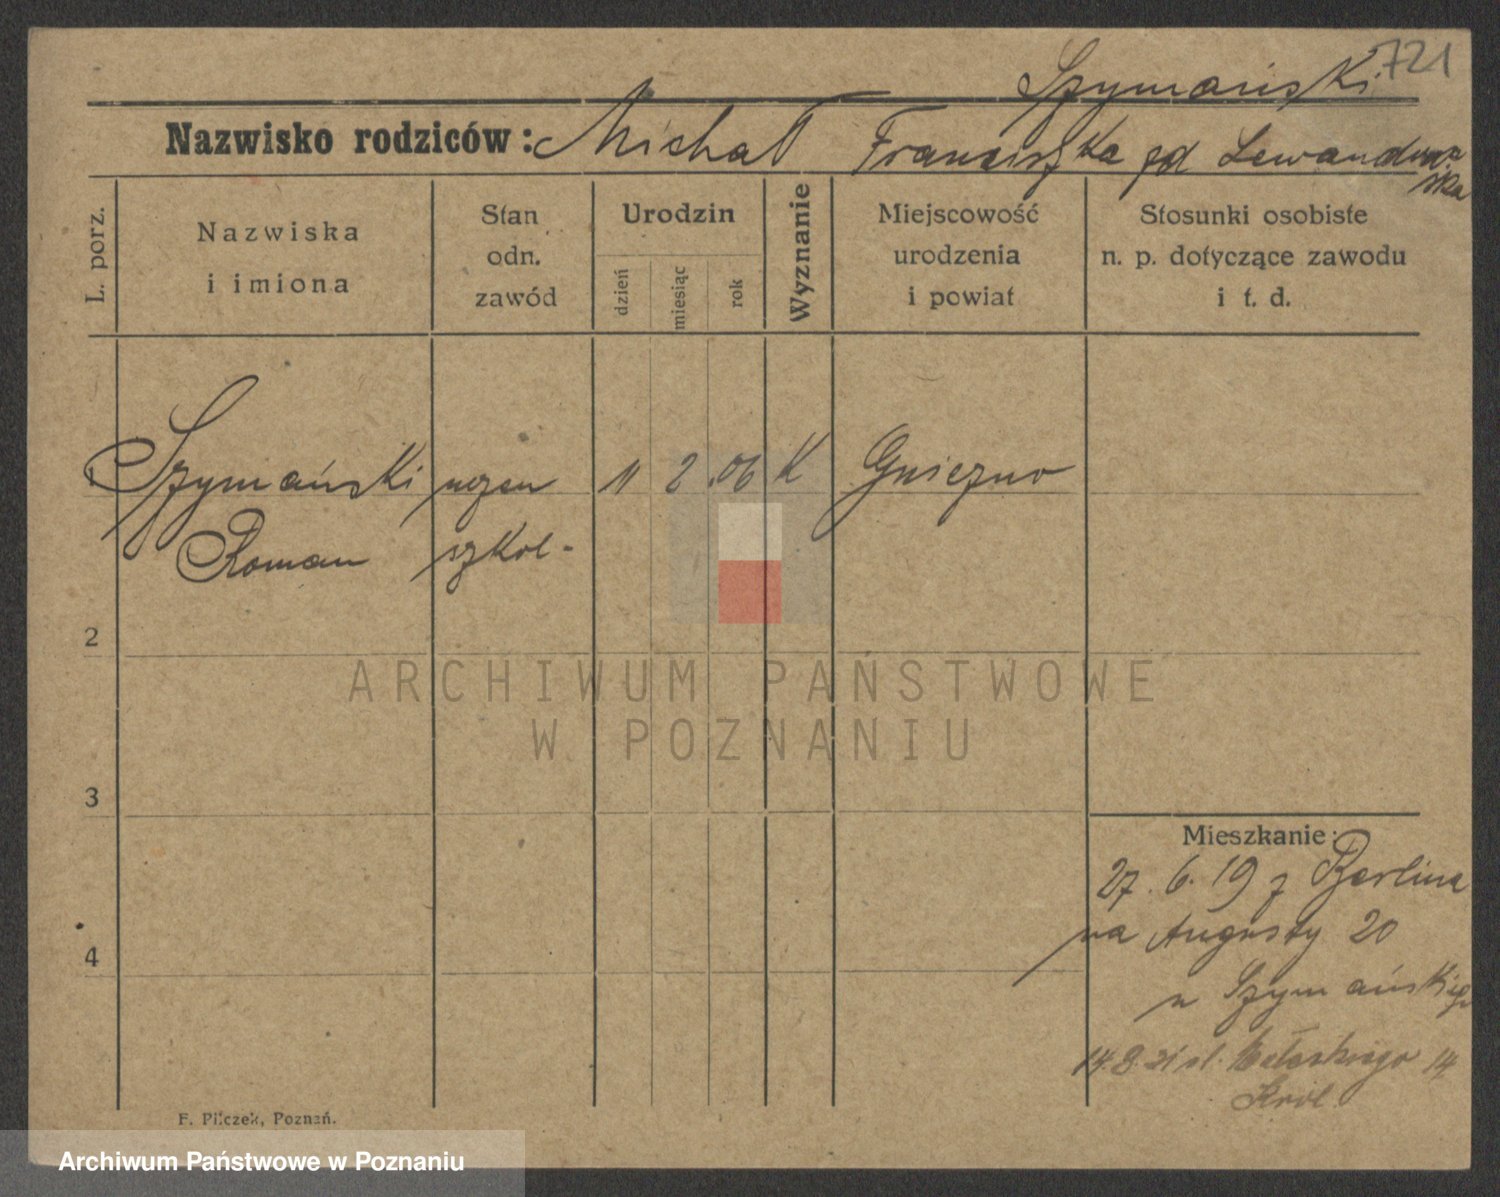 721
Szymański
Nazwisko rodziców: Michał Franciszka zd Lewandow
ska
L. porz.
Nazwiska
i imiona
Stan
odn.
zawód
Urodzin
dzień
miesiąc
rok
Wyznanie
Miejscowość
urodzenia
i powiat
Stosunki osobiste
n. p. dotyczące zawodu
i t. d.
Szymański uczen 11 2 .06 K Gniezno
Roman szkol-
2
3
4
Mieszkanie:
27. 6. 19 z Berlina
na Augusty 20
u Szymańskieg
14.8.21 ul. 14
Król.
F. Pilczek, Poznań.
ARCHIWUM PAŃSTWOWE
W POZNANIU
Archiwum Państwowe w Poznaniu